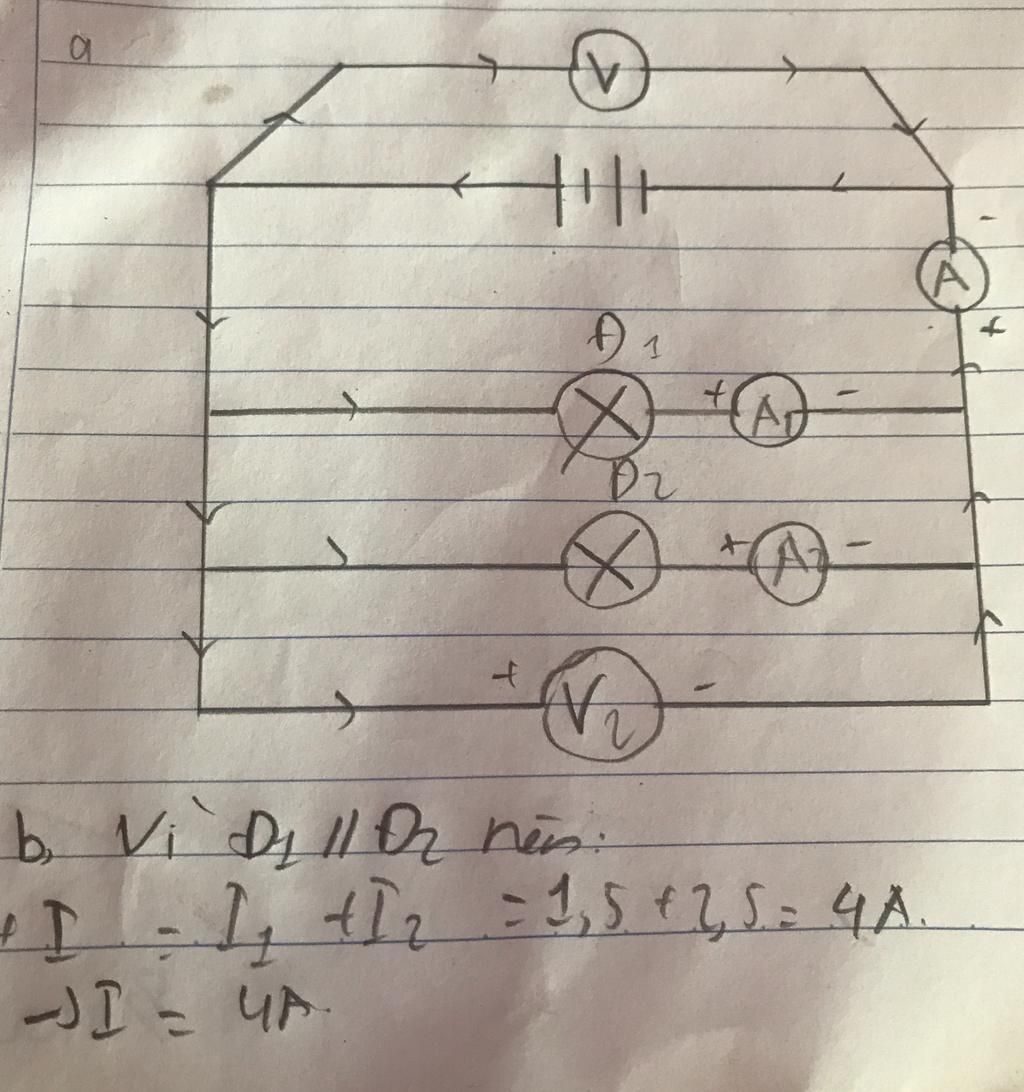 a
V
-
A
+
Đ1
+ A1 -
Đ2
+ A2 -
+ V2 -
b, Vì Đ1 // Đ2 nên:
+ I = I1 + I2 = 1,5 + 2,5 = 4A.
→ I = 4A